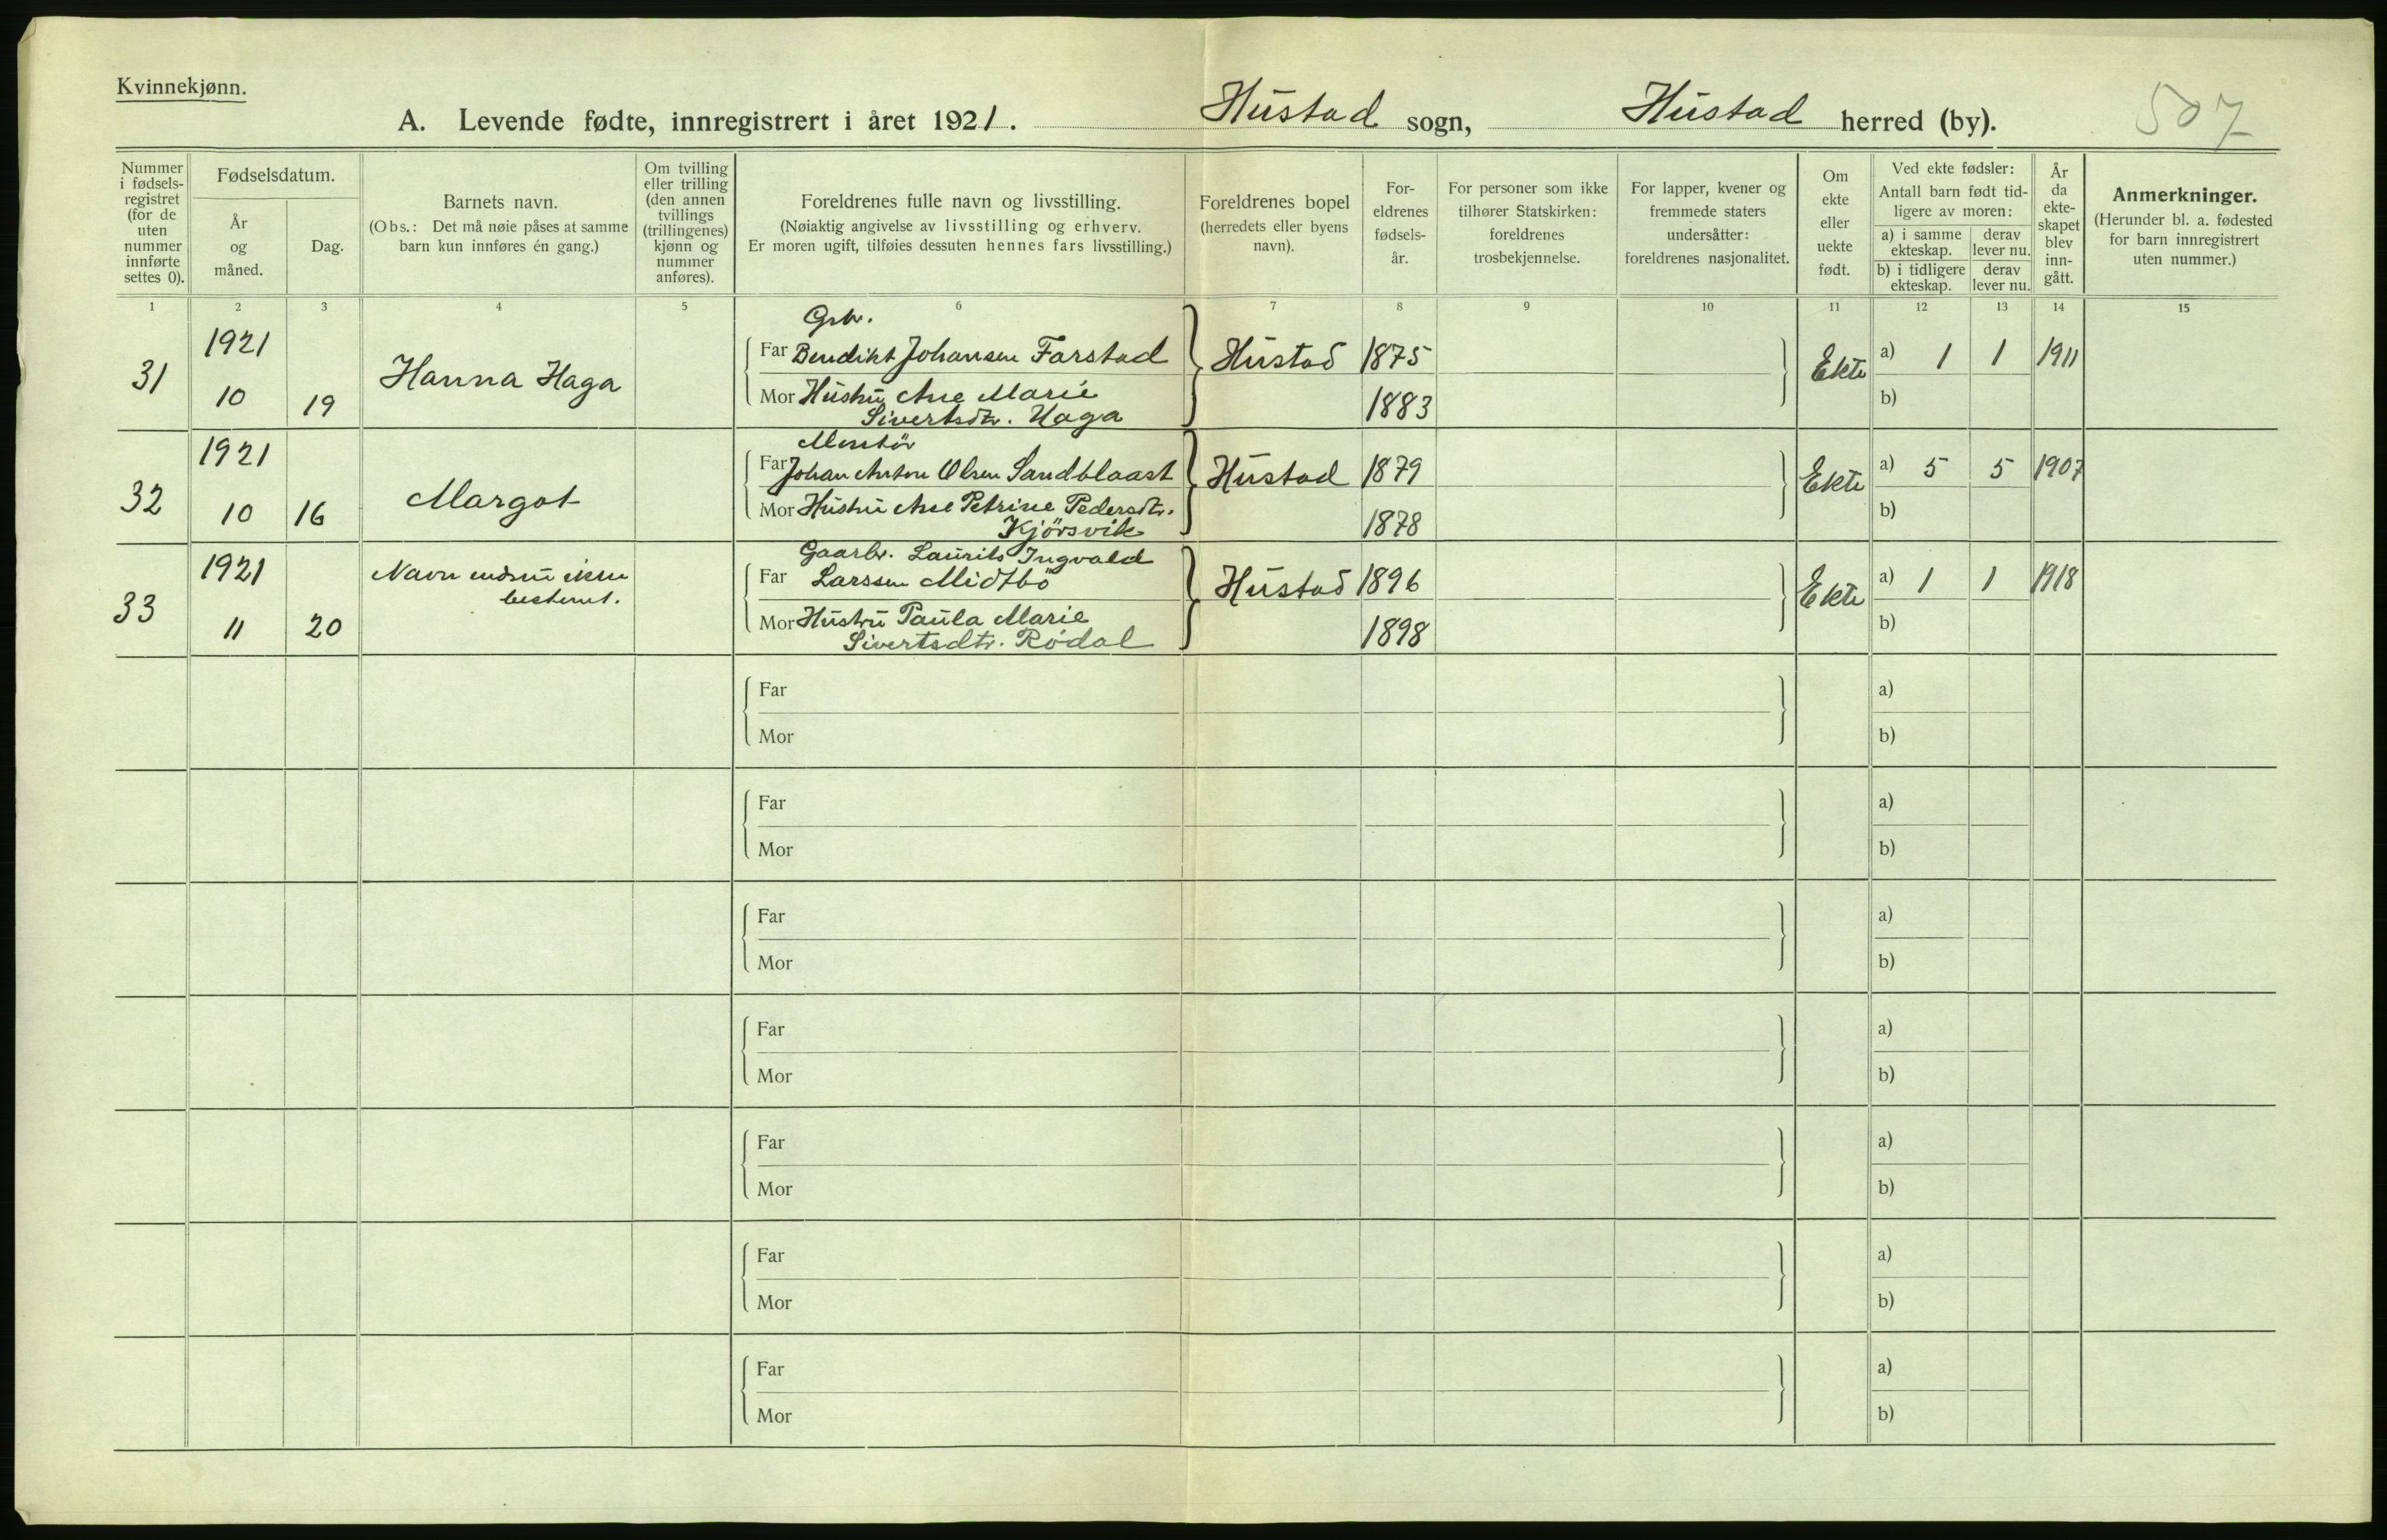 Kvinnekjønn.
A. Levende fødte, innregistrert i året 1921. Hustad sogn, Hustad herred (by). 507
Nummer i fødsels- registret (for de uten nummer innførte settes 0).
Fødselsdatum.
År og måned.
Dag.
Barnets navn.
(Obs.: Det må nøie påses at samme barn kun innføres én gang.)
Om tvilling eller trilling (den annen tvillings (trillingenes) kjønn og nummer anføres).
Foreldrenes fulle navn og livsstilling.
(Nøiaktig angivelse av livsstilling og erhverv.
Er moren ugift, tilføies dessuten hennes fars livsstilling.)
Foreldrenes bopel
(herredets eller byens navn).
For- eldrenes fødsels- år.
For personer som ikke tilhører Statskirken: foreldrenes trosbekjennelse.
For lapper, kvener og fremmede staters undersåtter: foreldrenes nasjonalitet.
Om ekte eller uekte født.
Ved ekte fødsler:
Antall barn født tid- ligere av moren:
a) i samme ekteskap.
derav lever nu.
b) i tidligere ekteskap.
derav lever nu.
År da ekte- skapet blev inn- gått.
Anmerkninger.
(Herunder bl. a. fødested for barn innregistrert uten nummer.)
1 2 3 4 5 6 7 8 9 10 11 12 13 14 15
Grbr.
31 1921 10 19 Hanna Haga
Far Bendikt Johansen Farstad Hustad 1875 Ekte a) 1 1 1911
Mor Hustru Ane Marie
Sivertsdtr. Haga 1883 b)
32 1921 10 16 Margot
Far Johan Anton Olsen Sandblaast Hustad 1879 Ekte a) 5 5 1907
Mor Hustru Ane Petrine Pedersdtr.
Kjörsvik 1878 b)
33 1921 11 20 Navn endnu ikke
bestemt.
Gaarbr. Laurits Ingvald
Far Larssen Midtbö Hustad 1896 Ekte a) 1 1 1918
Mor Hustru Paula Marie
Sivertsdtr. Rödal 1898 b)
Far a)
Mor b)
Far a)
Mor b)
Far a)
Mor b)
Far a)
Mor b)
Far a)
Mor b)
Far a)
Mor b)
Far a)
Mor b)